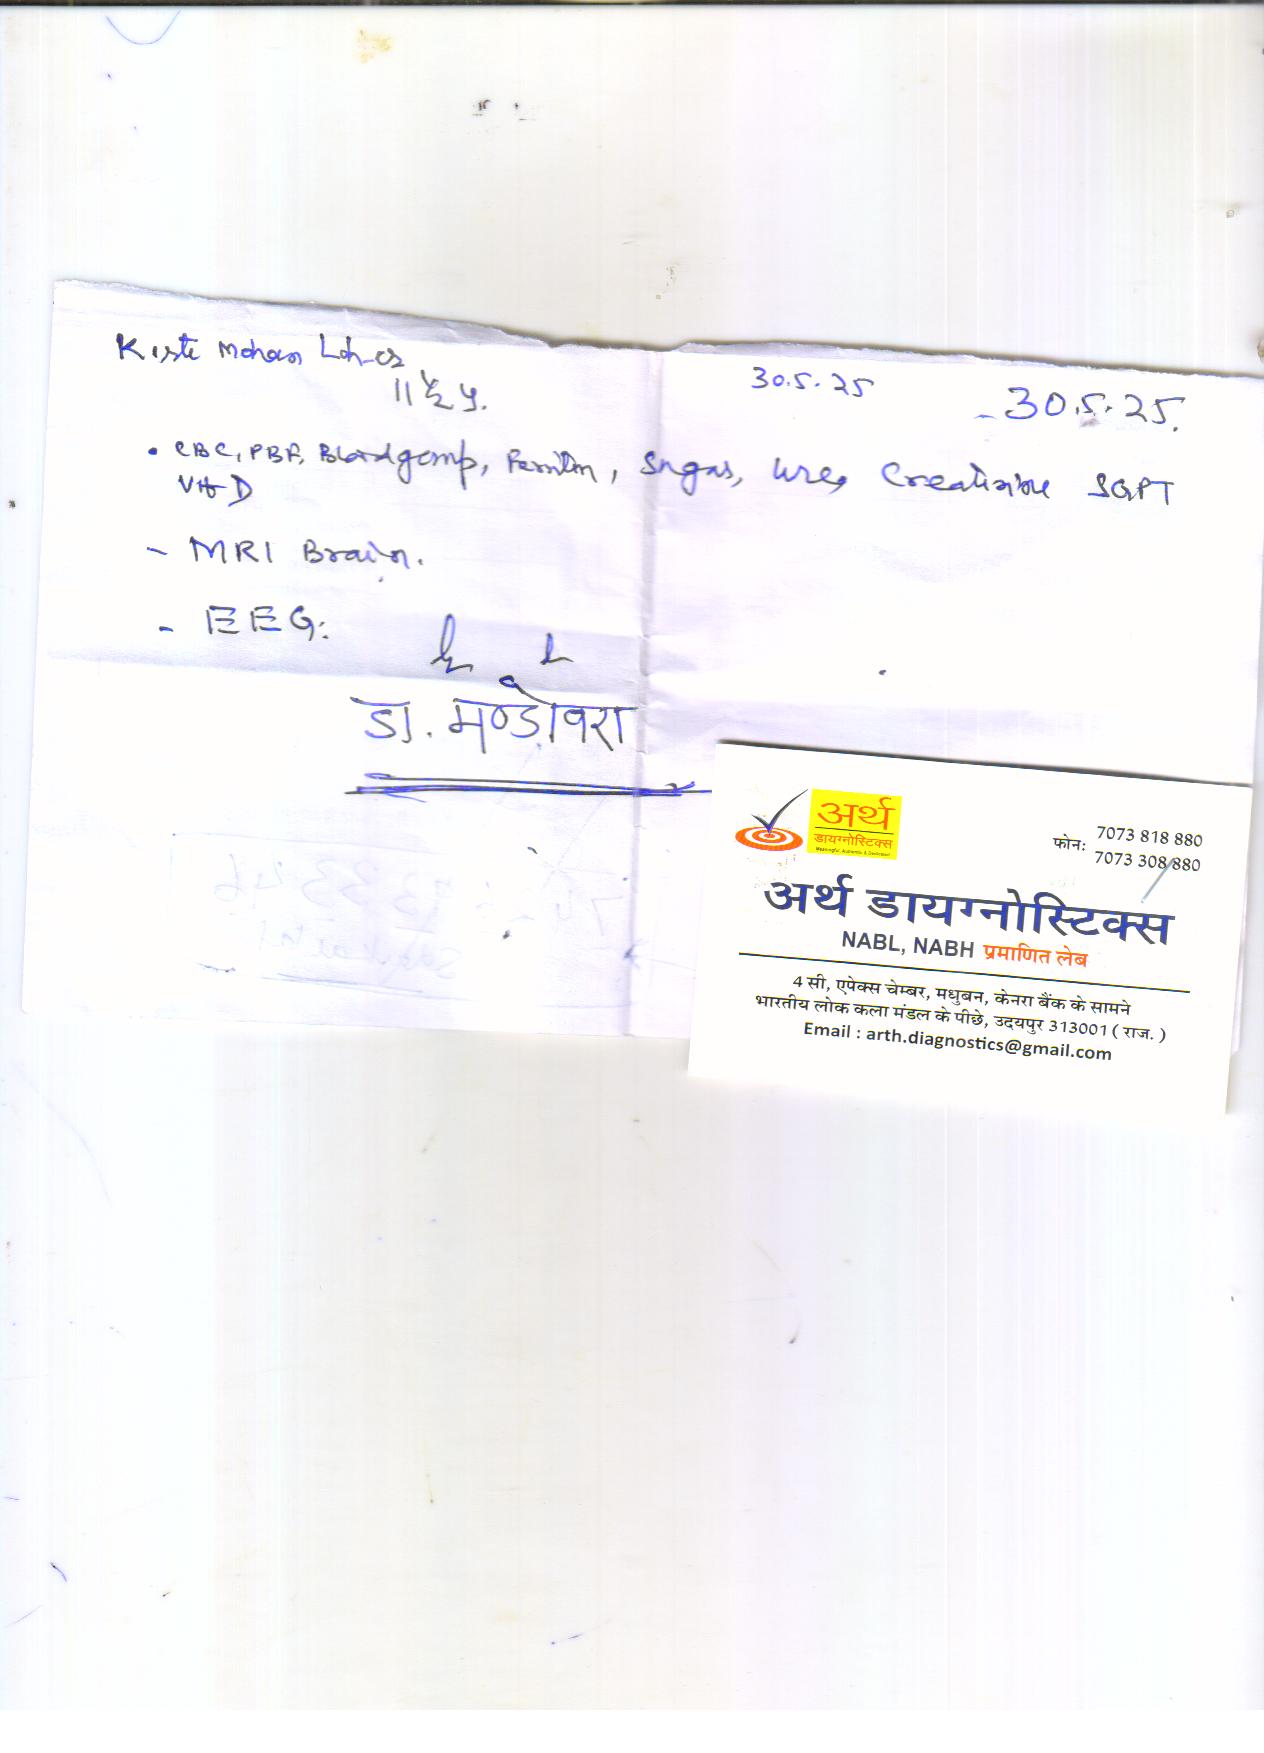 Mohan
11 1/2 y.
30.5.25
- 30.5.25.
• CBC, PBF, Bloodgroup, Ferritin, Sugar, Urea, Creatinine SGPT
Vit D
- MRI Brain.
- EEG.
डा. मण्डोवरा
अर्थ
डायग्नोस्टिक्स
फोन: 7073 818 880
7073 308 880
अर्थ डायग्नोस्टिक्स
NABL, NABH प्रमाणित लेब
4 सी, एपेक्स चेम्बर, मधुबन, केनरा बैंक के सामने
भारतीय लोक कला मंडल के पीछे, उदयपुर 313001 ( राज. )
Email : arth.diagnostics@gmail.com